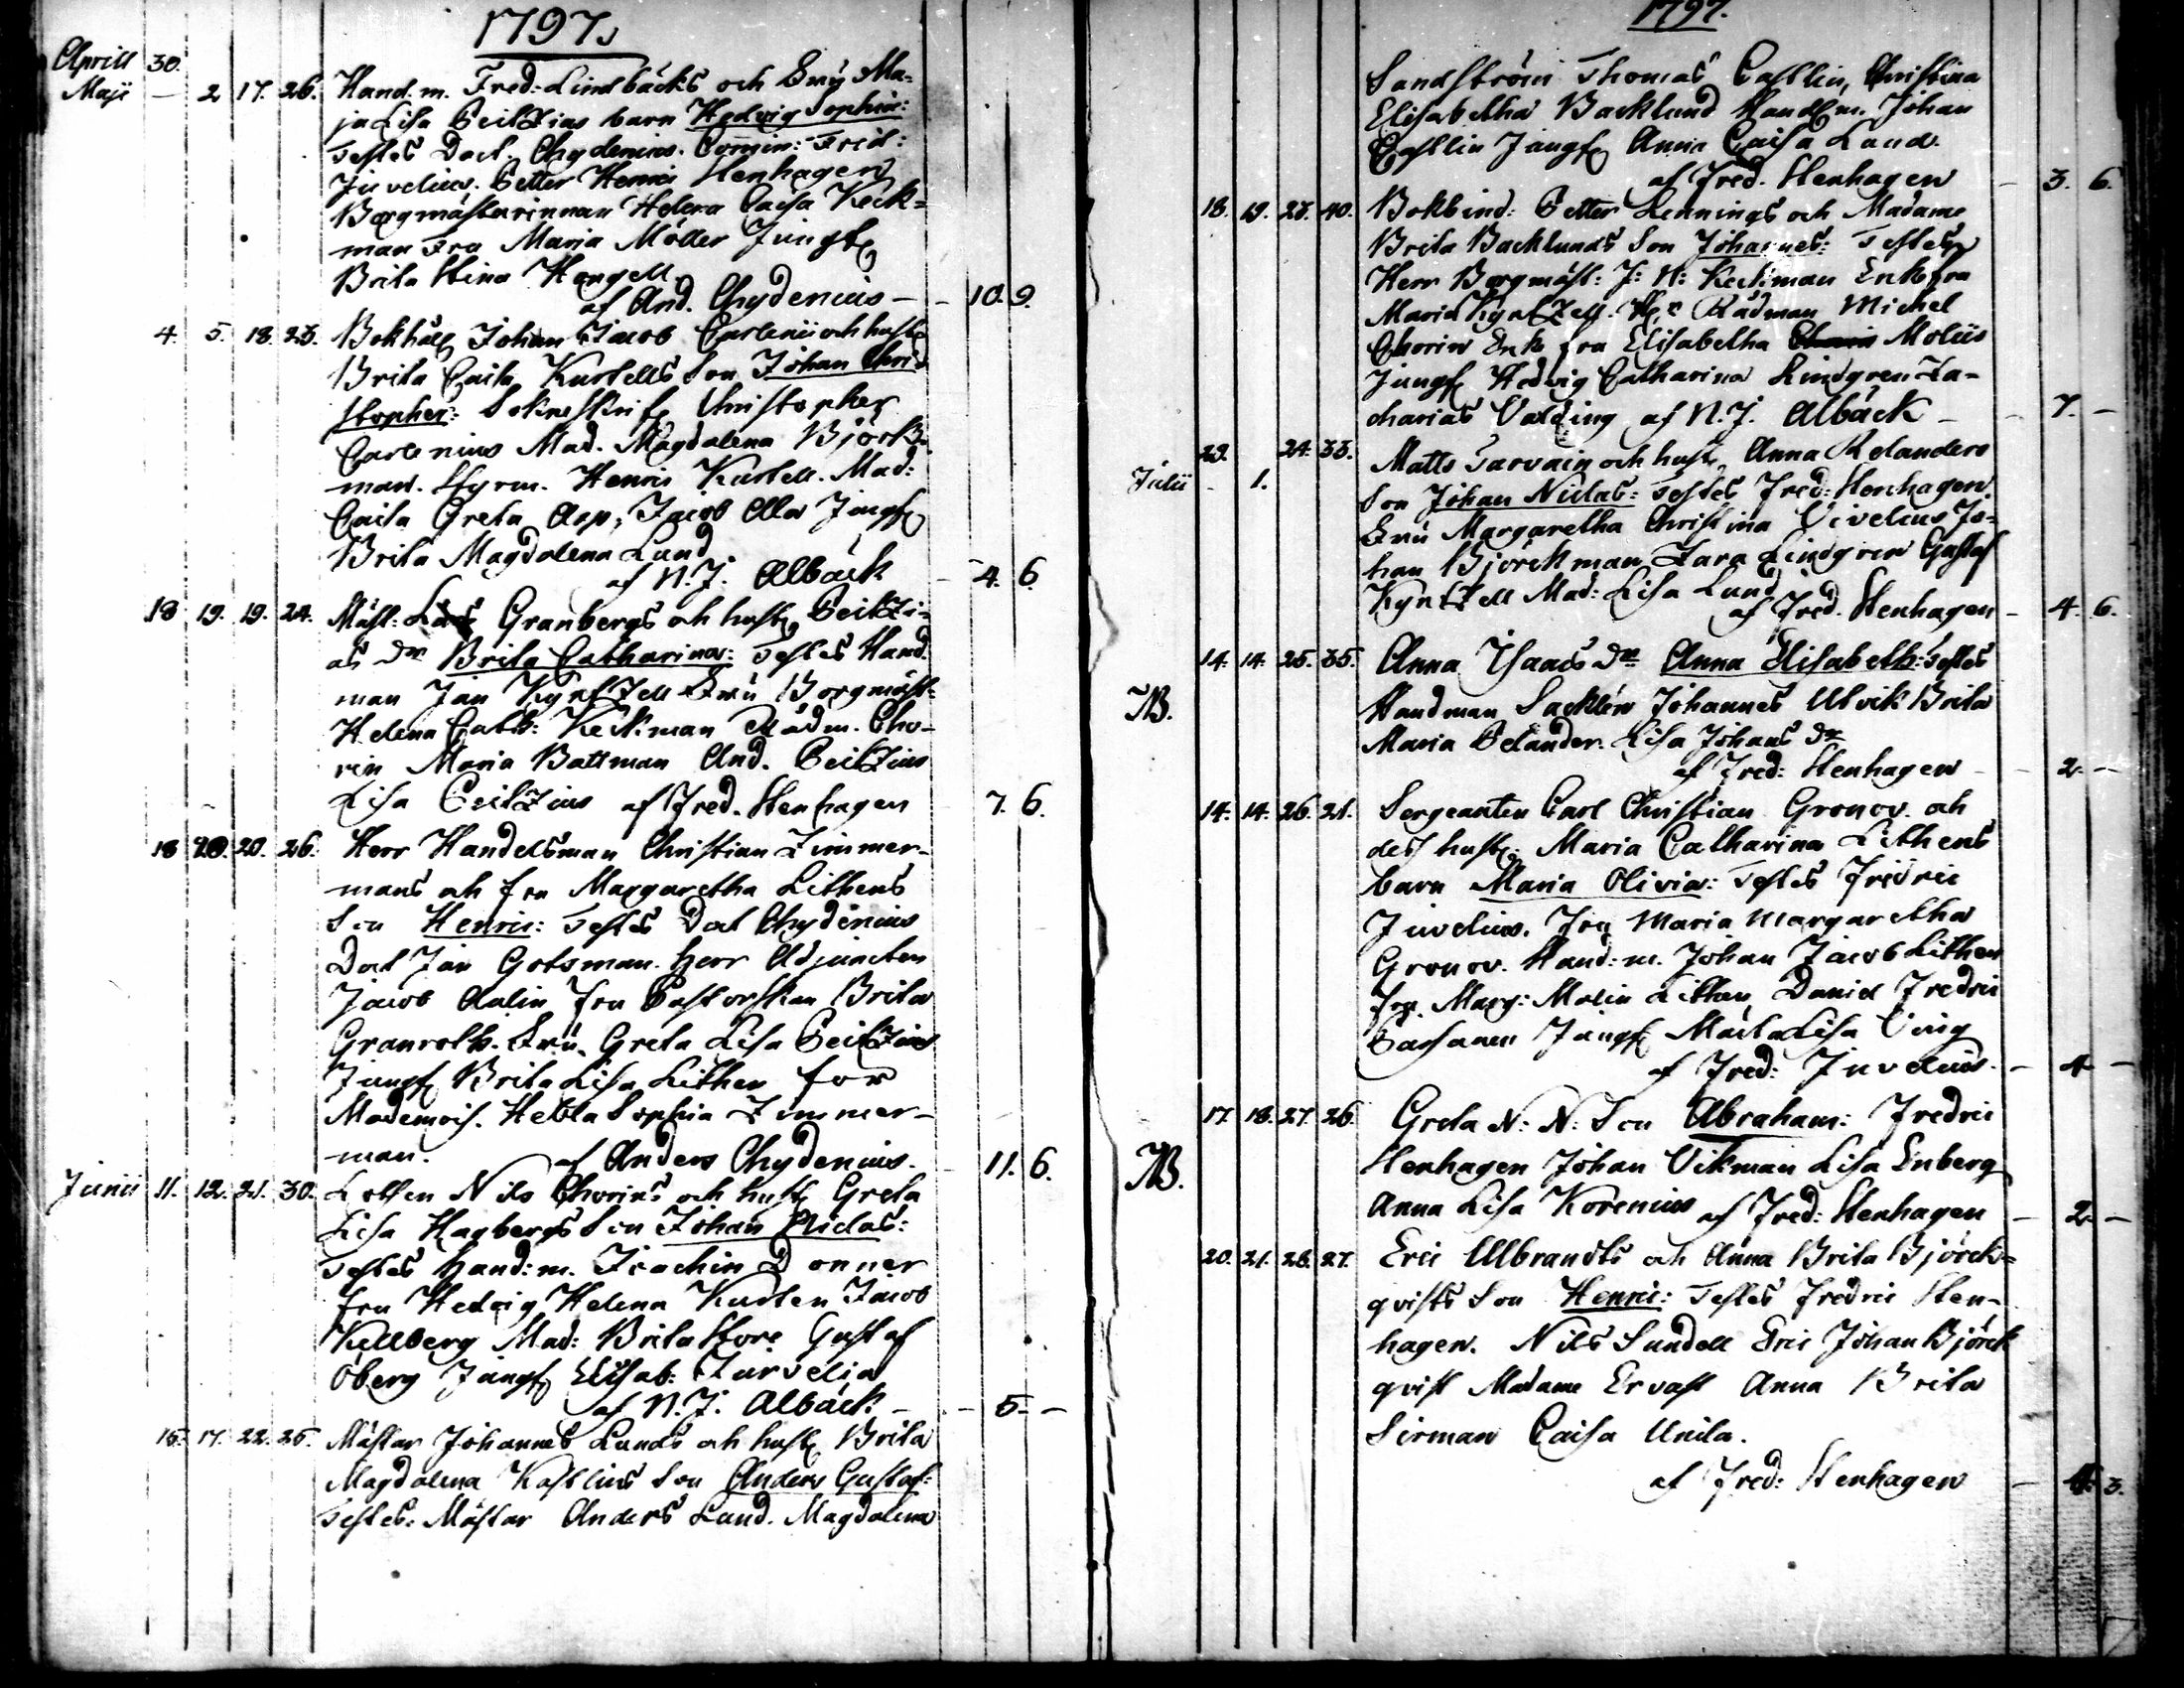 1797.
Aprill 30.
Maji — 2 17. 26. Hand. m. Fred: Lindbäcks och Fru Ma-
ja Lisa Peitzius barn Hedvig Sophia:
Testes Doct. Chydenius. Commin: Frid:
Juvelius. Petter Henric Stenhagen
Borgmästarinnan Helena Caisa Keck=
man Fru Maria Möller Jungf
Brita Stina Hongell
af And. Chydenius — 10. 9.
4. 5. 18. 23. Bokhåll Johan Jacob Carlenii och hust
Brita Caisa Kurtells Son Johan Chri
stopher: Sokneskrif Christopher
Carlenius Mad. Magdalena Björk-
man. Styrm. Henric Kurtell. Mad:
Caisa Greta Asp, Jacob Alla Jungf
Brita Magdalena Lund
af N. J. Albäck — 4. 6.
18 19. 19. 24. Mäst: Lars Granbergs och hust Peitzi-
as Dr Brita Catharina: Testes Hand.
man Jan Kyntzell Fru Borgmäst-
Helena Cath: Keckman Rådm. Cho-
rin Maria Battman And. Peitzius
Lisa Peitzius af Fred. Stenhagen 7. 6.
18 20. 20. 26. Herr Handelsman Christian Zimmer-
mans och fru Margaretha Lithens
Son Henric: Testes Doct Chydenius
Doct Jan Gotsman. Herr Adjuncten
Jacob Aalin fru Pastorskan Brita
Granroth. Fru Greta Lisa Peitzius
Jungf Brita Lisa Lithen for
Mademois. Hebla Sophia Zimmer-
man. af Anders Chydenius. — 11. 6.
Junii 11. 12. 21. 30. Lotsen Nils Chorins och hust Greta
Lisa Hagbergs Son Johan Niclas:
Testes Hand: m. Joachim Donner
fru Hedvig Helena Kurten Jacob
Kellberg Mad: Brita Store Gustaf
Öberg Jungf Elisab: Jurvelia
af N. J. Albäck — 5. —
16. 17. 22. 25. Mästar Johannes Lunds och hust Brita
Magdalena Kastlins Son Anders Gustaf:
Testes: Mästar Anders Lund. Magdalena
1797.
Sandström Thomas Castlin, Christina
Elisabetha Backlund Handlm. Johan
Castlin Jungf Anna Caisa Lund.
af Fred. Stenhagen — 3. 6.
18. 19. 23. 40. Bokbind: Petter Lennings och Madame
Brita Backlunds Son Johannes: Testes
Herr Borgmäst: J: H: Keckman Enkefru
Maria Kyntzell. Hr Rådman Michel
Chorin Enk fru Elisabetha Moliis
Jungf Hedvig Catharina Lindgren Za-
charias Valding af N. J. Albäck — 7. —
29. 24. 33. Matts Tarvain och hust. Anna Relanders
Julii — 1. Son Johan Niclas: Testes Fred: Stenhagen.
Fru Margaretha Christina Vivelius Jo-
han Björckman Zara Lindgren Gustaf
Kyntzell Mad: Lisa Lund
af Fred. Stenhagen — 4. 6.
14. 14. 25. 35. Anna Isaacs Dr Anna Elisabeth: Testes
NB. Handman Sacklén Johannes Ulvik Brita
Maria Pelander. Lisa Johans Dr
af Fred: Stenhagen — 2. —
14. 14. 26. 21. Sergeanten Carl Christian Gronov. och
dess hust. Maria Catharina Lithens
barn Maria Olivia: Testes Fridric
Juvelius. Fru Maria Margaretha
Gronov. Hand: m. Johan Jacob Lithen
fru. Marg: Molin Lithen Daniel Fredric
Jungf Maria Lisa Ving
af Fred: Juvelius. — 4 —
17. 18. 27. 26. Greta N: N: Son Abraham: Fredric
NB. Stenhagen Johan Vikman Lisa Enberg
Anna Lisa Korenius af Fred: Stenhagen — 2. —
20. 21. 28. 27. Eric Ulbrandts och Anna Brita Björck=
qvists Son Henric: Testes Fredric Sten-
hagen. Nils Sundell Eric Johan Björck
qvist Madame Ervast Anna Brita
Sirman Caisa Unila.
af Fred: Stenhagen — 4. 3.